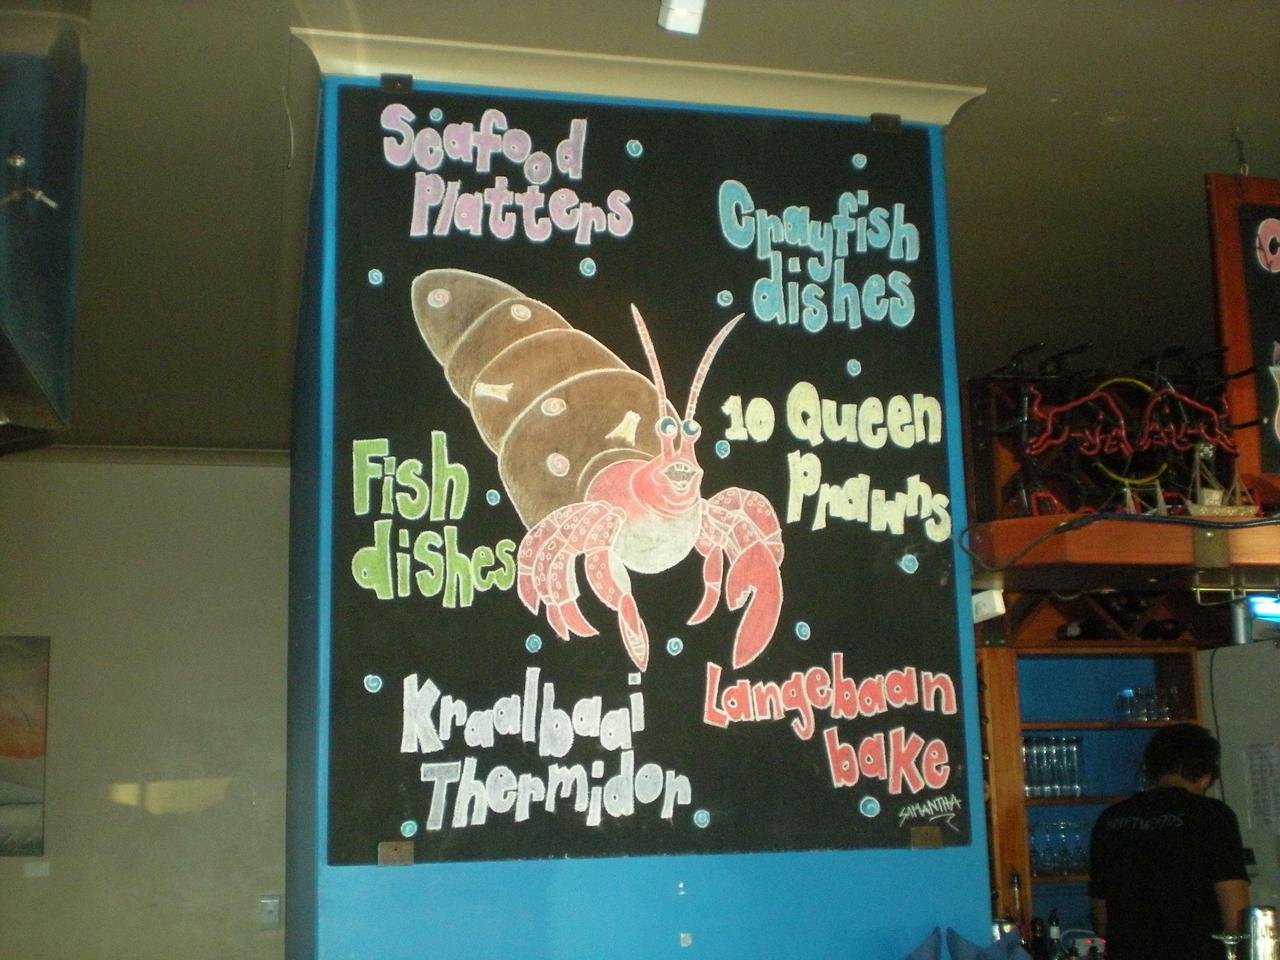 Seafood
Platters
Crayfish
dishes
10 Queen
Prawns
Fish
dishes
Kraalbaai
Thermidor
Langebaan
bake
SAMANTHA